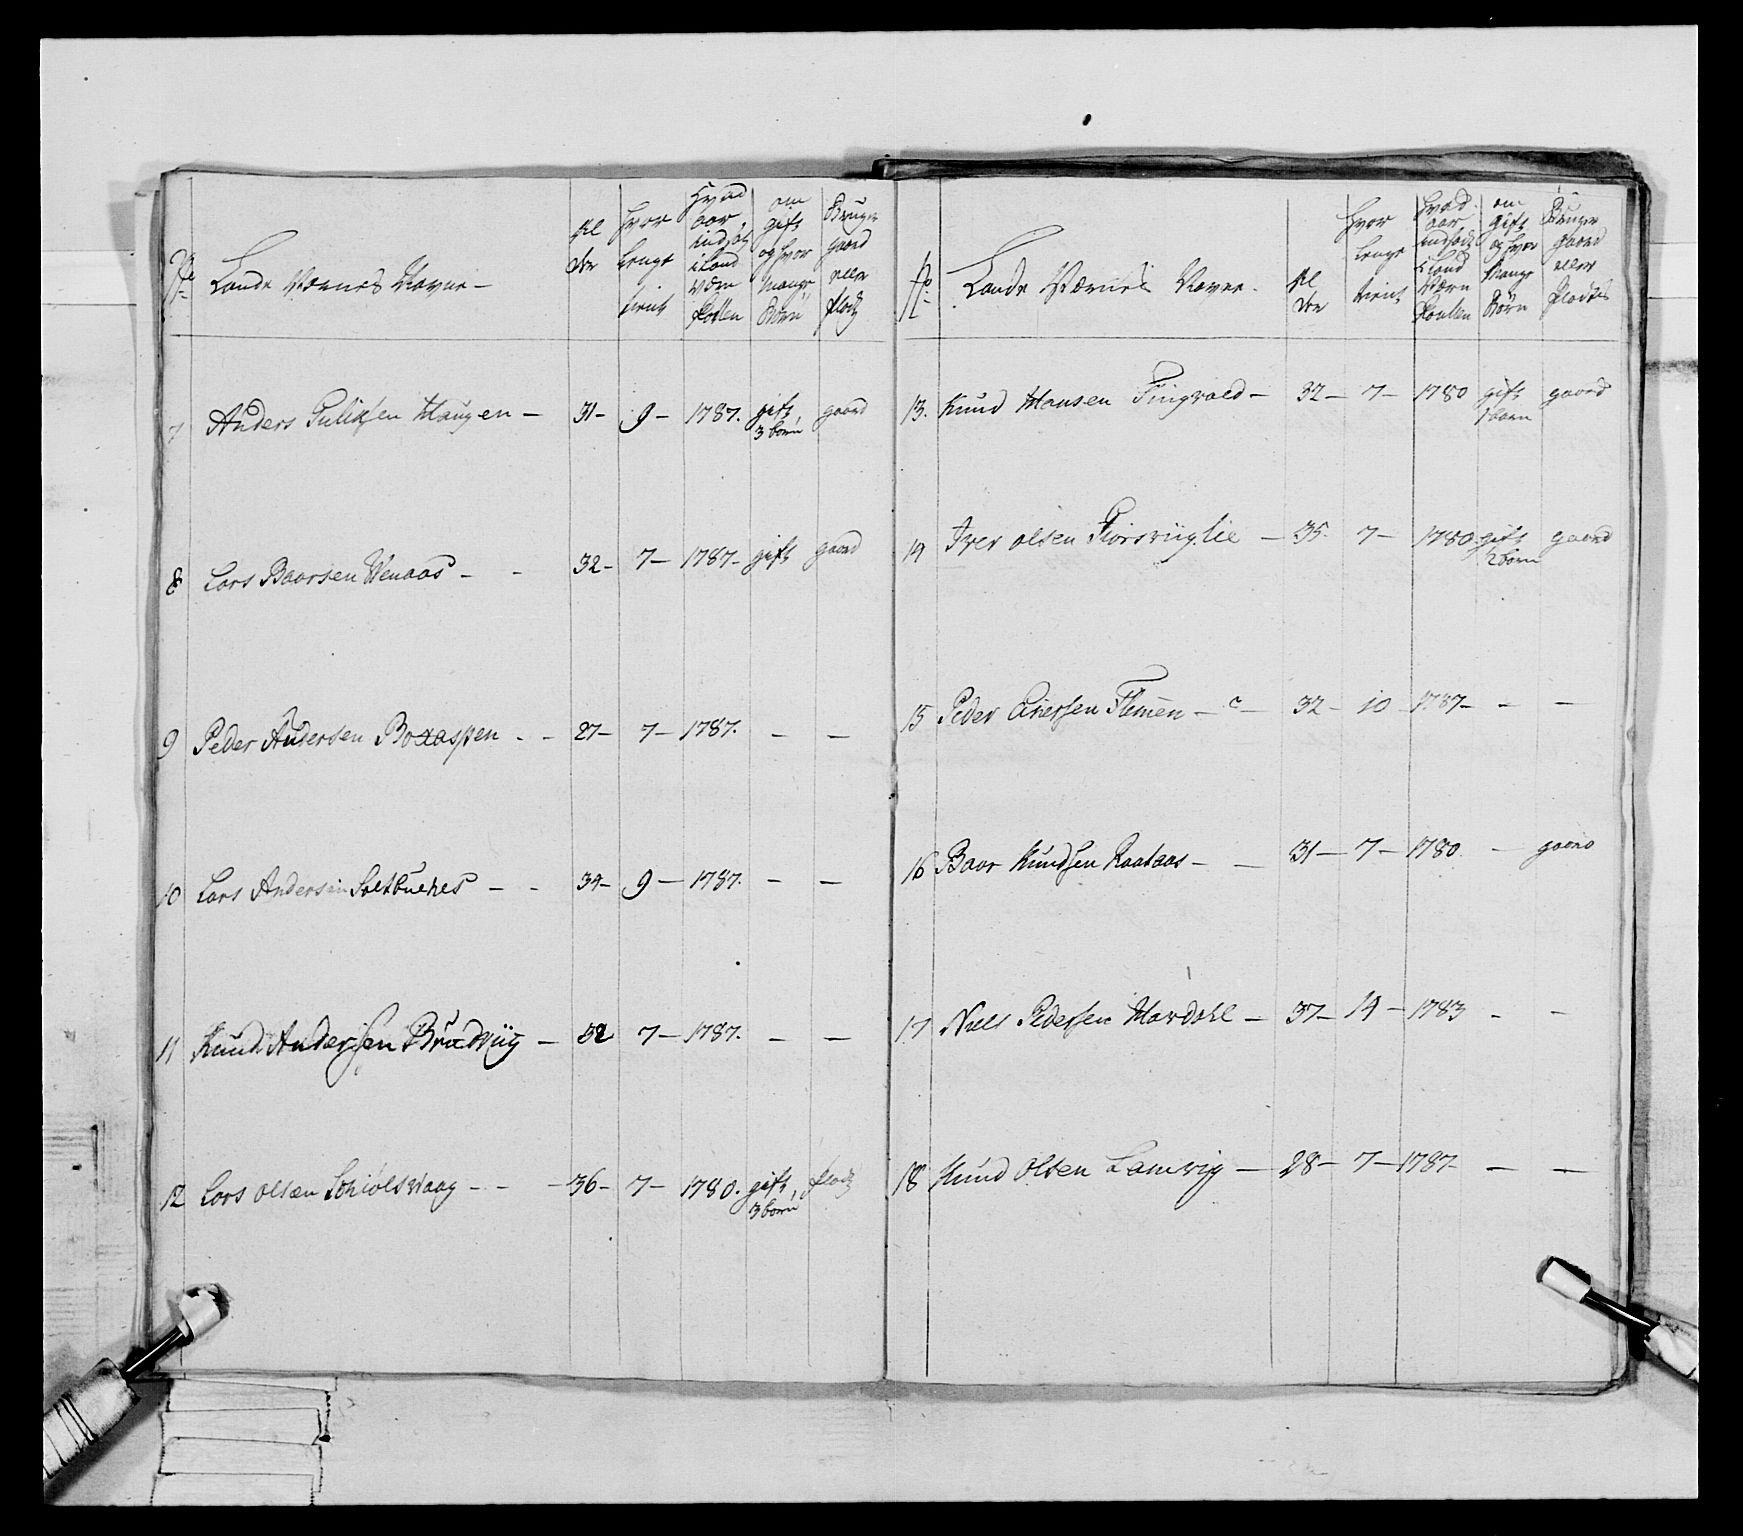 No Lande Værnes Navne - Al der hvor lenge tient Hvad aar indsat i Land værn Rollen om gift og hvor mange Børn Bruger gaard eller Plads
7 Anders Gulichsen Haugen - 31 - 9 - 1787. gift, gaard
3 børn
8 Lars Baarsen Wenaas - - 32 - 7 - 1787 - gift gaard
9 Peder Andersen Boxaspen - - 27 - 7 - 1787. - -
10 Lars Andersen Soltbuehes - - 34 - 9 - 1787. - -
11 Knud Andersen Bradviig - 32 7 - 1787. - -
12 Lars olsen Schiølsvaag - - - 36 - 7 - 1780. gift, plads
3 børn
No Lande Værnes Navne. Al der hvor lenge tient hvad aar indsadt i Land Værn Roullen om gift og hvor Mange Børn Bruger gaard eller Pladtz
13. Knud Hansen Tingvold - 32 - 7 - 1780 gift gaard
1 barn
14 Iver olsen Fiørsviiglie - 35. 7 - 1780. gift gaard
2 børn
15 Peder Einersen Flemen - - 32 - 10 - 1787 - - -
16 Baar Knudsen Raataas - - 31 - 7 - 1780. - gaard
17 Niels Pedersen Mardahl - 37 - 14 - 1783 - -
18 Knud olsen Lamvig - 28 - 7 - 1787 - - -